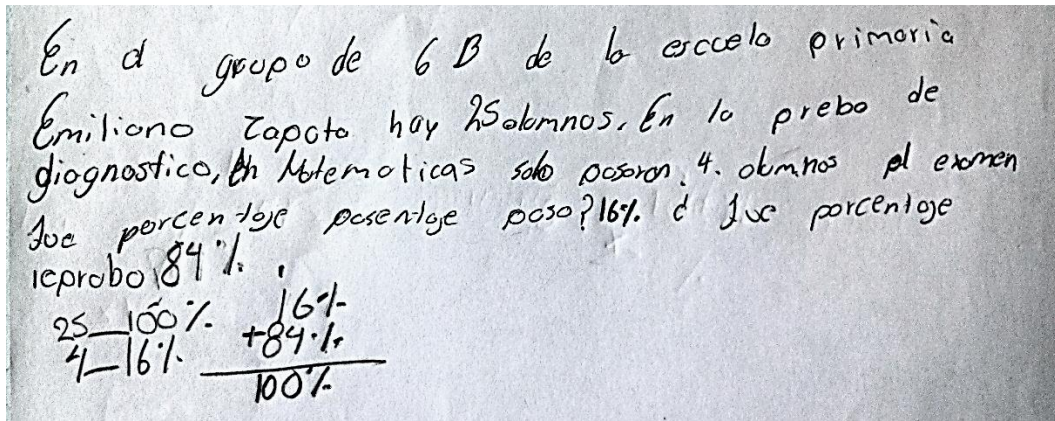 En el grupo de 6 B de la esccela primaria
Emiliano Zapata hay 25 alomnos. En la preba de
diagnostico, En Matematicas solo pasaron. 4. alomnos el examen
Que porcentaje posentage paso? 16%. ¿ Que porcentaje
reprobo 84%.
25 100% 16%
4 16% +84%
100%